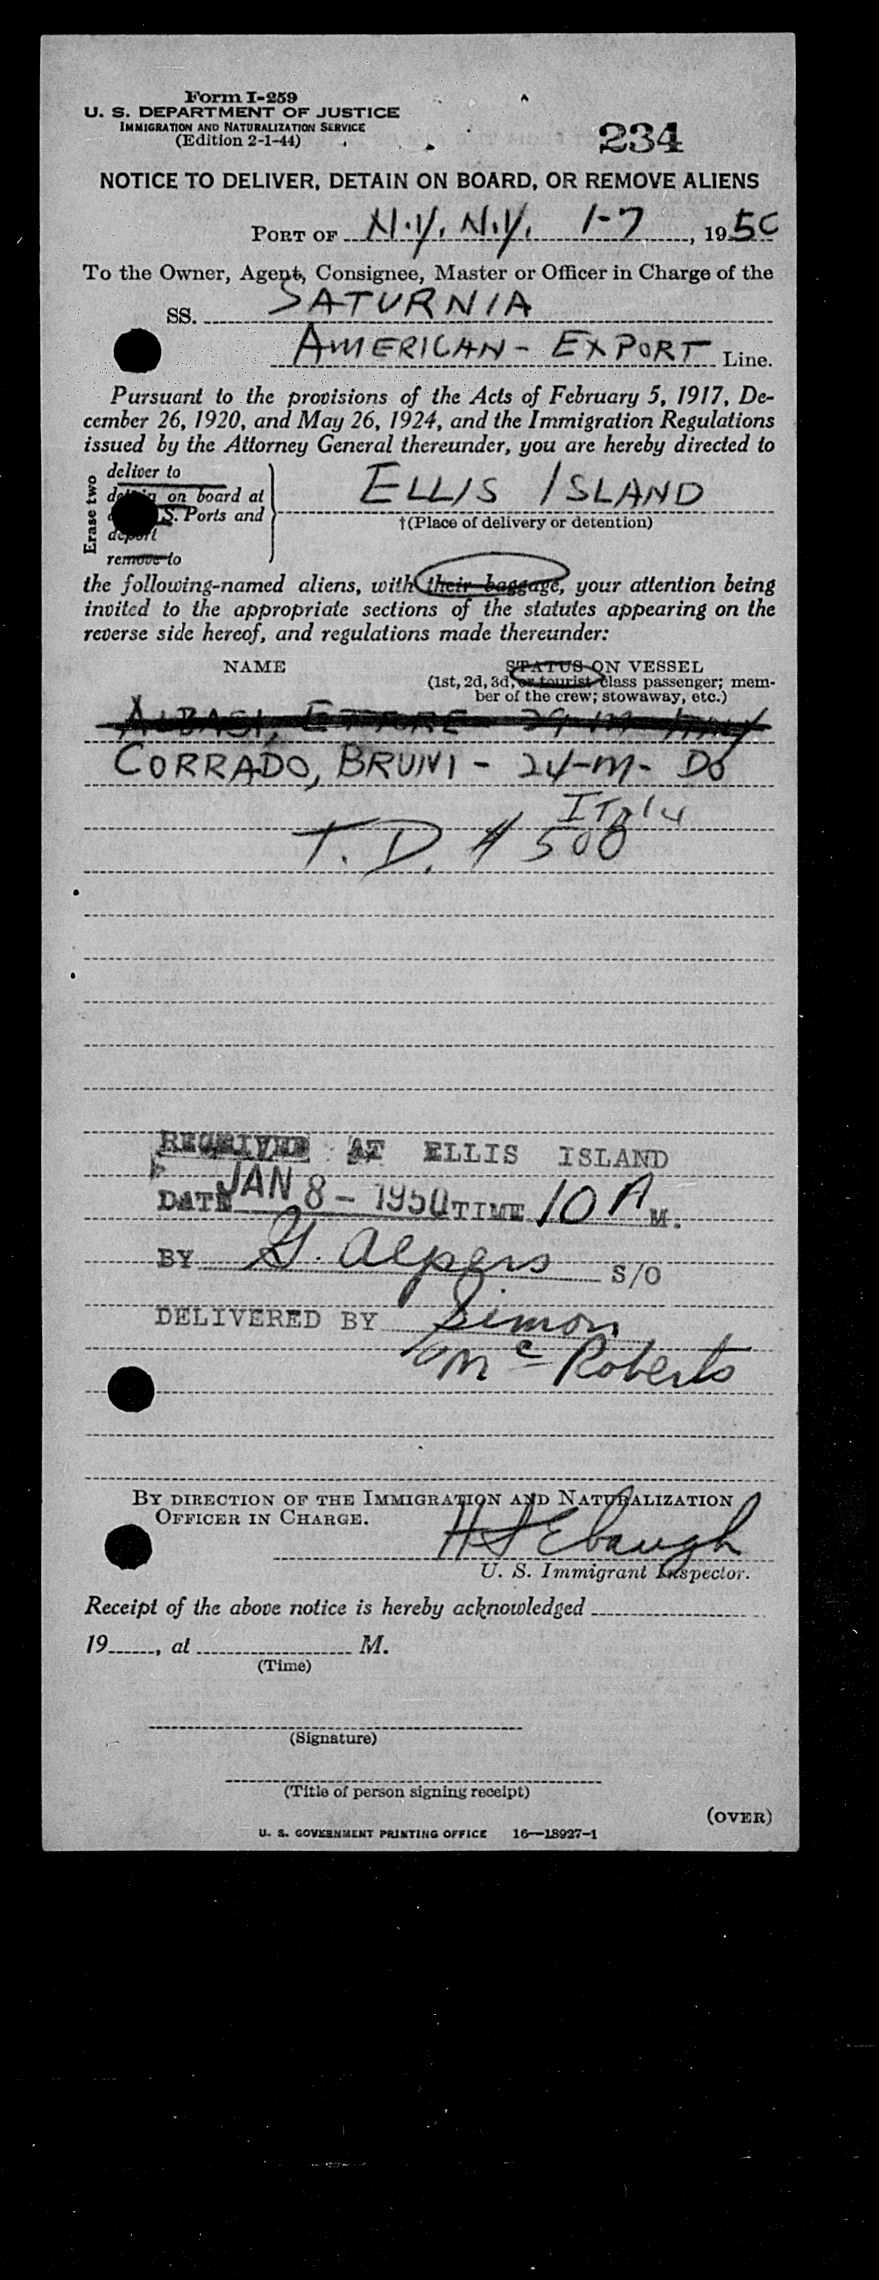 Form I-259
U. S. DEPARTMENT OF JUSTICE
IMMIGRATION AND NATURALIZATION SERVICE
(Edition 2-1-44)
234
NOTICE TO DELIVER, DETAIN ON BOARD, OR REMOVE ALIENS
PORT OF N.Y. N.Y. 1-7, 1950
To the Owner, Agent, Consignee, Master or Officer in Charge of the
SS. SATURNIA
AMERICAN - EXPORT Line.
Pursuant to the provisions of the Acts of February 5, 1917, De-
cember 26, 1920, and May 26, 1924, and the Immigration Regulations
issued by the Attorney General thereunder, you are hereby directed to
Erase two
deliver to
detain on board at
S. Ports and
deport
remove to
ELLIS ISLAND
†(Place of delivery or detention)
the following-named aliens, with their baggage, your attention being
invited to the appropriate sections of the statutes appearing on the
reverse side hereof, and regulations made thereunder:
NAME
STATUS ON VESSEL
(1st, 2d, 3d, or tourist class passenger; mem-
ber of the crew; stowaway, etc.)
ALBASI, ETTORE - 29-M-ITALY
CORRADO, BRUNI - 24-M- DO
ITALY
T. D. # 500
RECEIVED AT ELLIS ISLAND
DATE JAN 8 - 1950 TIME 10 A M.
BY G. Alpers S/O
DELIVERED BY Simon
McRoberts
BY DIRECTION OF THE IMMIGRATION AND NATURALIZATION
OFFICER IN CHARGE.
H S Ebaugh
U. S. Immigrant Inspector.
Receipt of the above notice is hereby acknowledged
19, at M.
(Time)
(Signature)
(Title of person signing receipt)
(OVER)
U. S. GOVERNMENT PRINTING OFFICE 16—18927-1